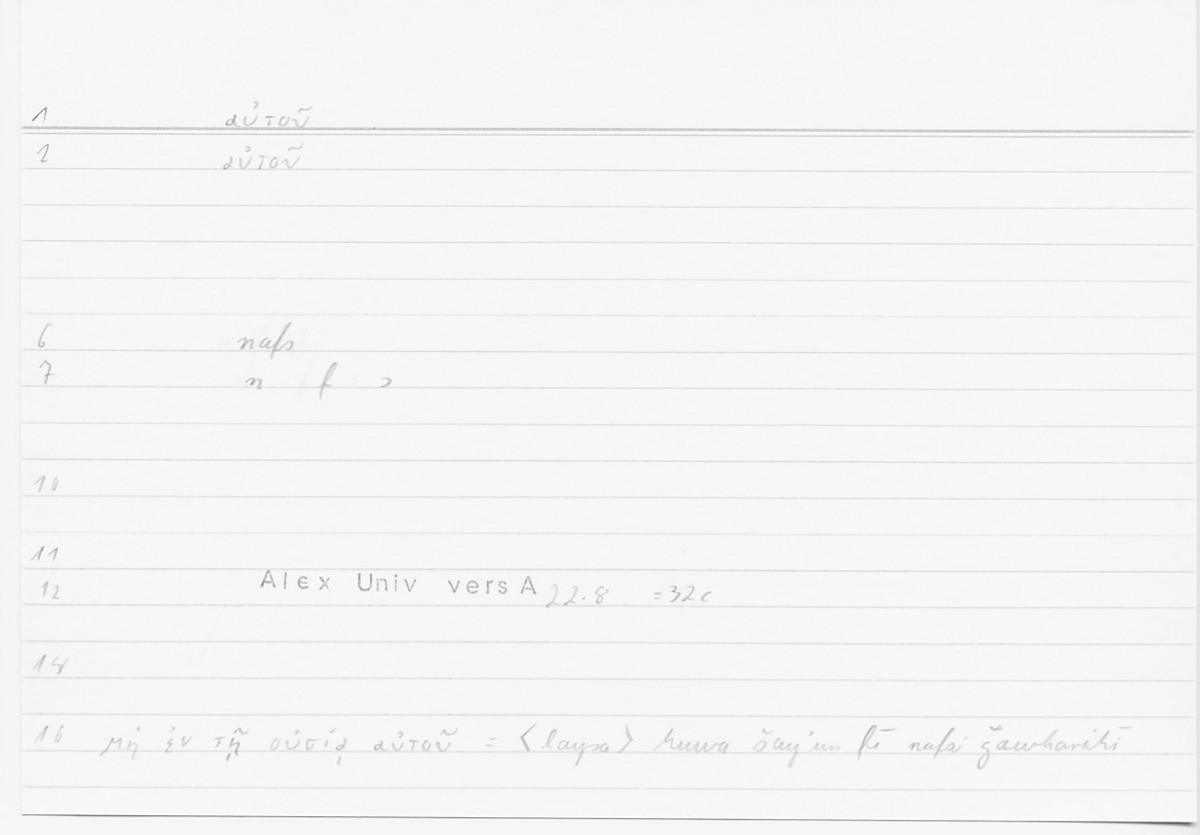 1 αὐτοῦ
2 αὐτοῦ
6 nafs
7 n f s
10
11
12 Alex Univ vers A 22.8 =32c
14
16 μὴ ἐν τῇ οὐσίᾳ αὐτοῦ = ⟨laysa⟩ huwa šay'un fī nafsi ǧawharihī